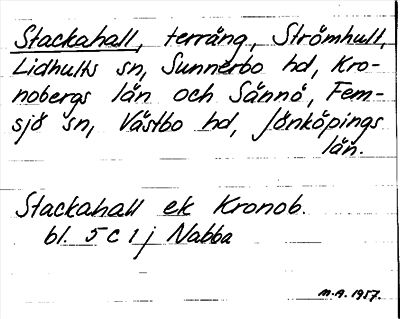 Stackahall, terräng, Strömhult,
Lidhults sn, Sunnerbo hd, Kro-
nobergs län och Sännö, Fem-
sjö sn, Västbo hd, Jönköpings
län.
Stackahall ek Kronob.
bl. 5 C 1 j Nabba
M.A. 1957.